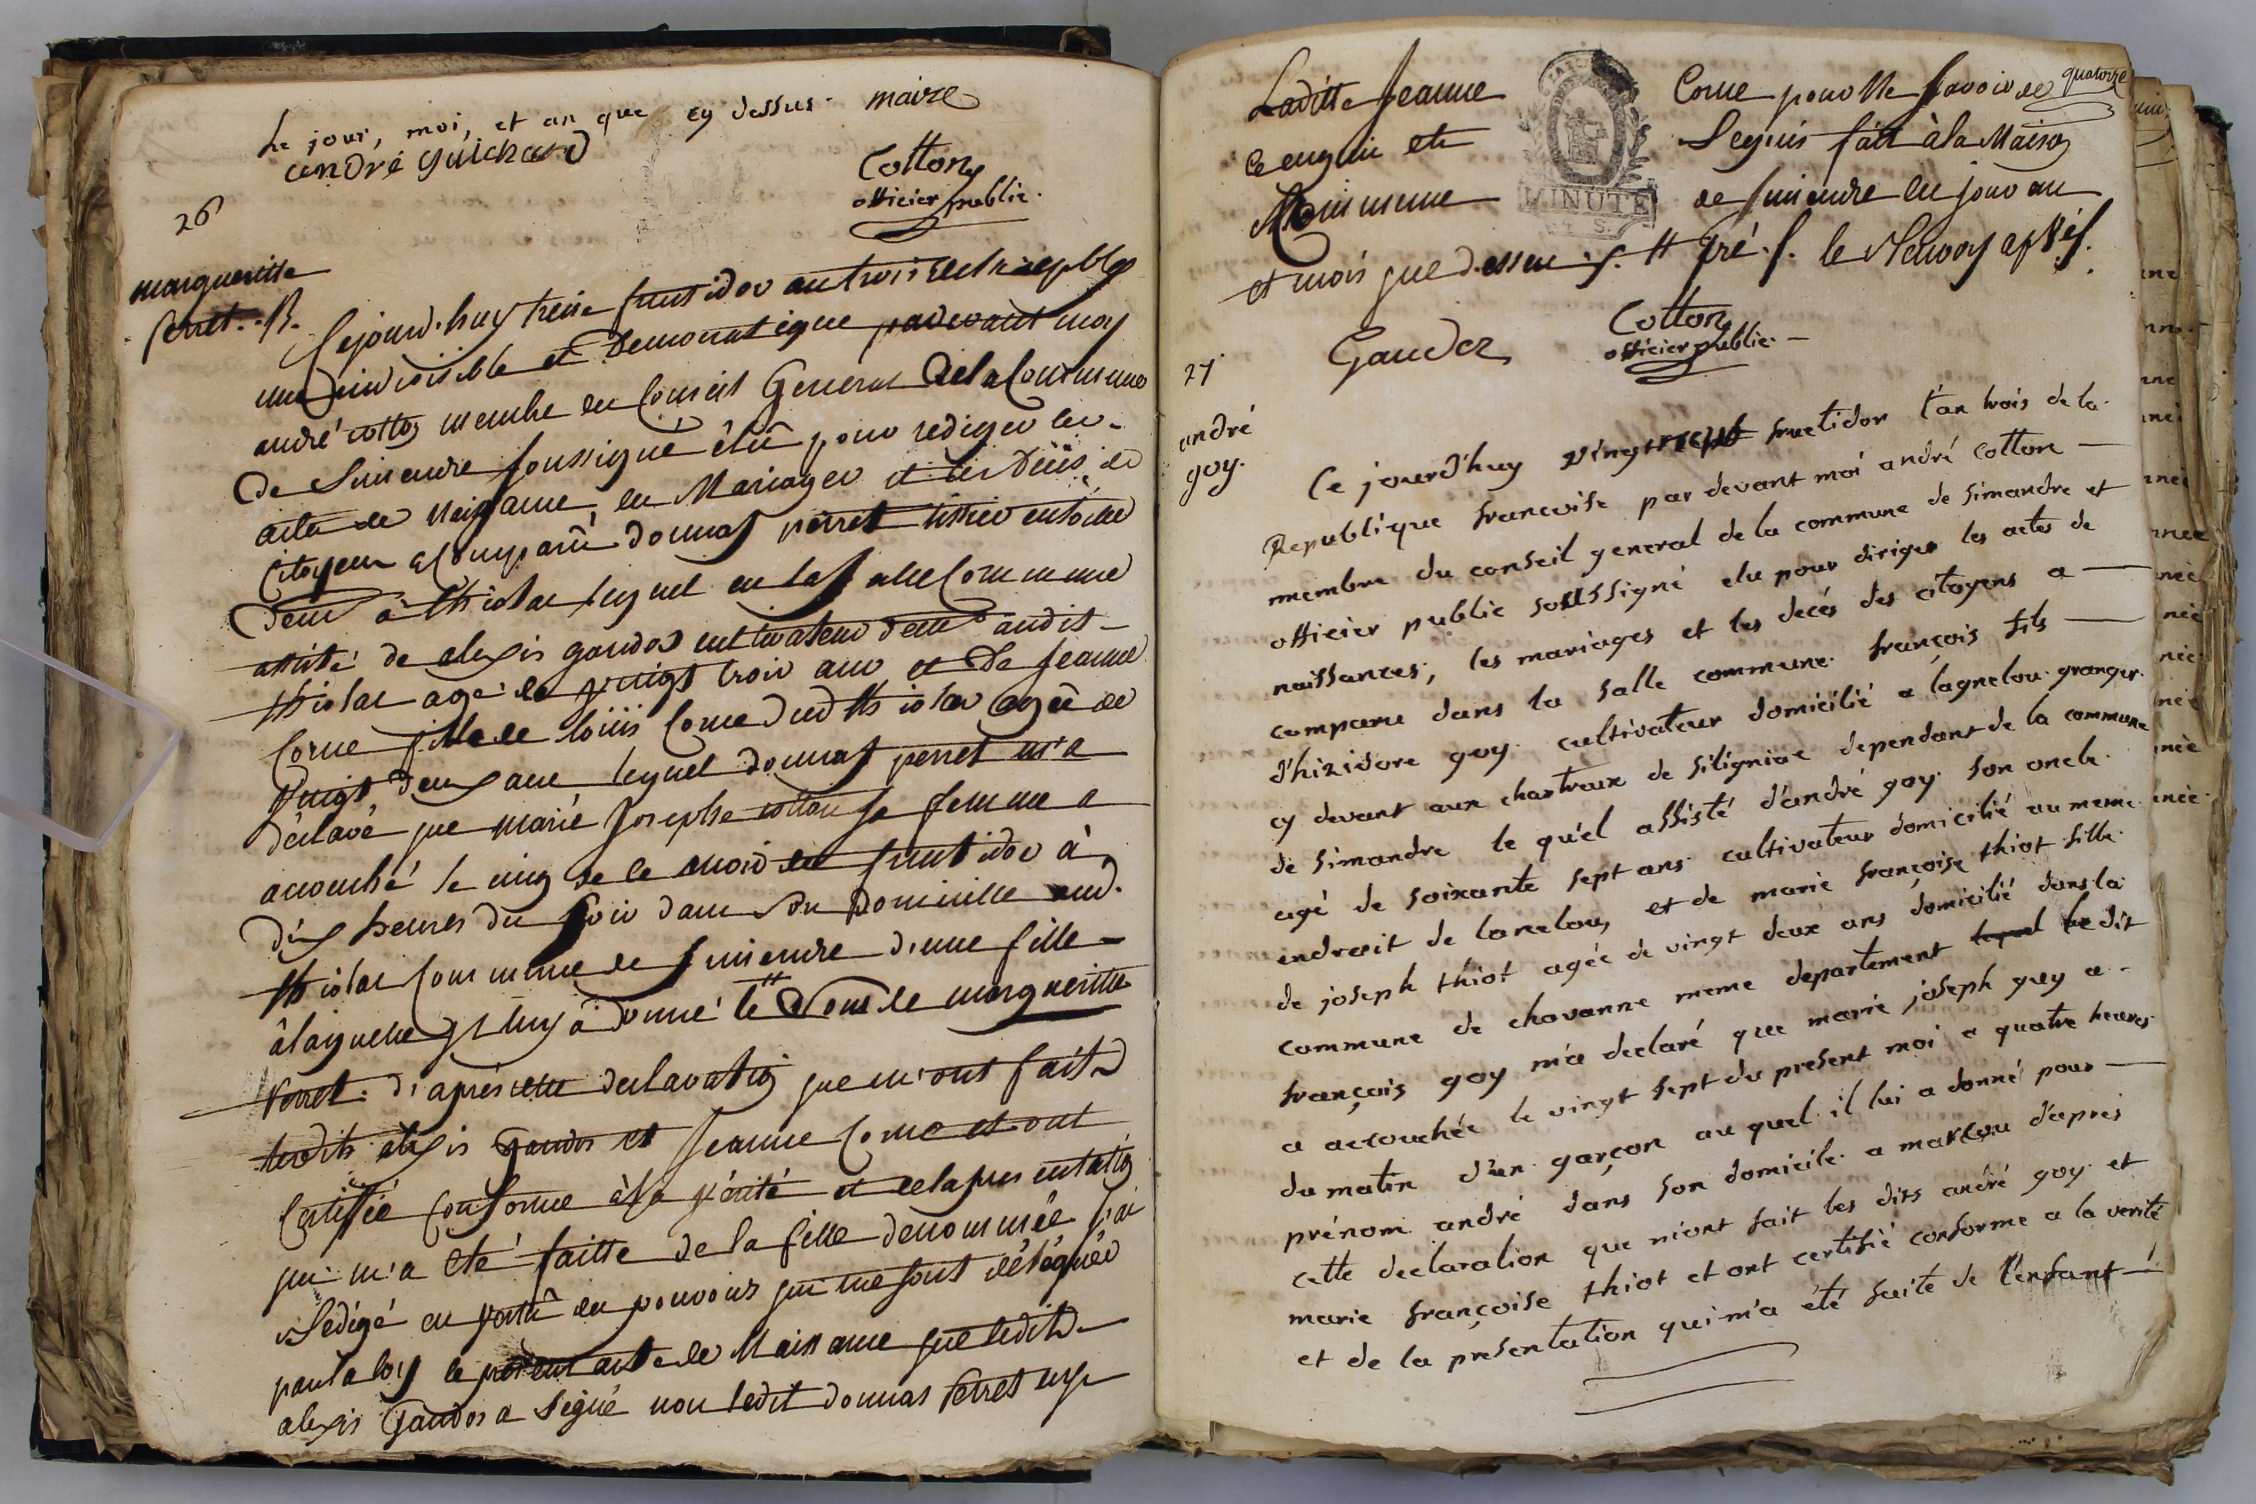 Le jour, moi, et an que cy dessus. maire
andré guichard
Cotton
officier public.
26
margueritte
perret. B.
Cejourd'huy treise fructidor an trois de la repbq
une indivisible et Democratique pardevant moy
andré cotton membre du Conseil General de la Commune
de Simandre soussigné élû pour rediger les
actes de Naissance, les Mariages et les Décès des
Citoyens a Comparû donnat perret tissier en toille
demt à thiolar lequel en la salle Commune
assisté de alexis gaudos cultivateur demt audit
thiolar age de vingt trois ans et de Jeanne
Corne fille de loüis Corne dud thiolar agée de
Vingt deux ans lequel donnat perret m'a
déclaré que marie Josephe cotton sa femme a
accouché le cinq de ce mois de fructidor à
dix heures du soir dans son Domicille aud.
thiolar Commune de simandre d'une fille
à laquelle il luy à donné le Nom de margueritte
perret. d'après cette declaration que m'ont fait
lesdits alexis Gaudos et Jeanne Corne et ont
Certiffié conforme à la vérité et de la presentation
qui m'a été faitte de la fille denommée j'ai
Rédigé en vertû des pouvoirs qui me sont délégués
par la loy le present acte de Naissance que ledit
alexis Gaudos a signé non ledit donnas Perret ny
quatorze
Laditte Jeanne Corne pour ne savoir de
ce enquis et Requis fait à la Maison
Commune de simandre les jour an
et mois que dessus
MINUTE
Gaudoz
Cotton
officier public.
27
andré
goy.
Ce jourd'huy vingt sept fructidor l'an trois de la
Republique francoise par devant moi andré cotton
membre du conseil general de la commune de simandre et
officier public soussigné elu pour diriger les actes de
naissances, les mariages et les decés des citoyens a
comparu dans la salle commune françois fils
d'hizidore goy cultivateur domicilié a lagnelou granger
cy devant aux chartreux de siligniac dependant de la commune
de simandre le quel assisté d'andré goy son oncle
agé de soixante sept ans cultivateur domicilié au meme
endroit de lanelou, et de marie françoise thiot fille
de joseph thiot agée de vingt deux ans domicilié dans la
commune de chavanne meme departement lequel le dit
françois goy m'a declaré que marie joseph guy a
a accouchée le vingt sept du present moi a quatre heures
du matin d'un garçon au quel il lui a donné pour
prénom andré dans son domicile a marcou d'apres
cette declaration que m'ont fait les dits andré goy et
marie françoise thiot et ont certifié conforme a la verité
et de la presentation qui m'a été faite de l'enfant